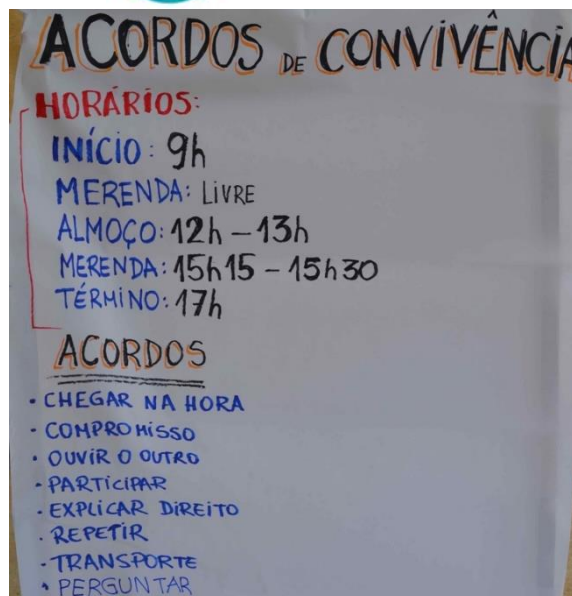 ACORDOS DE CONVIVÊNCIA
HORÁRIOS:
INÍCIO: 9h
MERENDA: LIVRE
ALMOÇO: 12h – 13h
MERENDA: 15h15 – 15h30
TÉRMINO: 17h
ACORDOS
· CHEGAR NA HORA
· COMPROMISSO
· OUVIR O OUTRO
· PARTICIPAR
· EXPLICAR DIREITO
· REPETIR
· TRANSPORTE
· PERGUNTAR